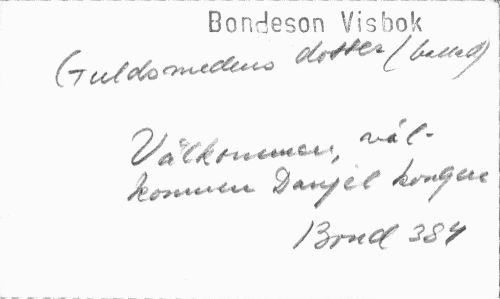 Bondeson Visbok
Guldsmedens dotter (ballad)
Välkommen, väl-
kommen Danjel kongen
Bond 384